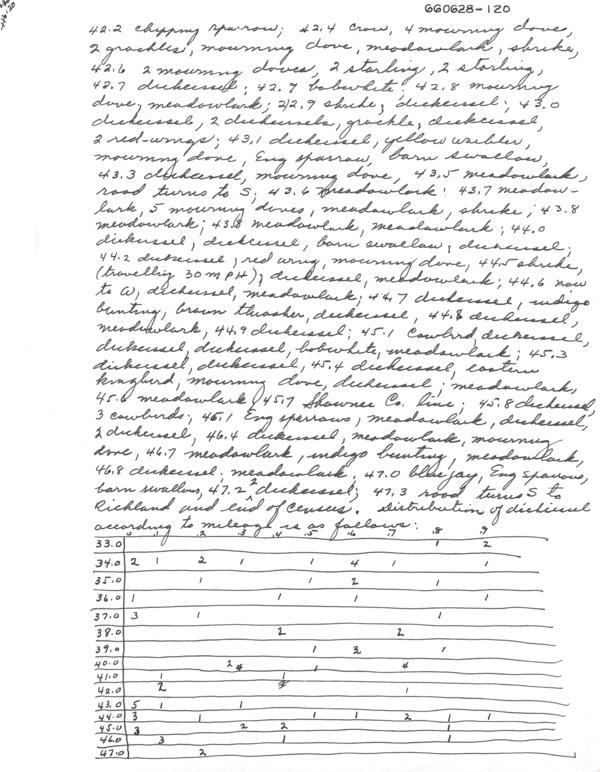 660628-120
42.2 chipping sparrow; 42.4 crow, 4 mourning dove,
2 grackles, mourning dove, meadowlark, shrike,
42.6 2 mourning doves, 2 starling, 2 starling,
42.7 dickcissel; 42.7 bobwhite; 42.8 mourning
dove, meadowlark; 42.9 shrike, dickcissel; 43.0
dickcissels, 2 dickcissels, grackle, dickcissel,
2 red-wings; 43.1 dickcissel, yellow warbler,
mourning dove, Eng sparrow, barn swallow,
43.3 dickcissel, mourning dove, 43.5 meadowlark,
road turns to S; 43.6 meadowlark; 43.7 meadow-
lark, 5 mourning doves, meadowlark, shrike; 43.8
meadowlark; 43.8 meadowlark, meadowlark; 44.0
dickcissel, dickcissel, barn swallow, dickcissel;
44.2 dickcissel, red wing, mourning dove, 44.5 shrike,
(travelling 30 MPH), dickcissel, meadowlark; 44.6 now
to W, dickcissel, meadowlark; 44.7 dickcissel, indigo
bunting, brown thrasher, dickcissel, 44.8 dickcissel,
meadowlark, 44.9 dickcissel; 45.1 cowbird, dickcissel,
dickcissel, dickcissel, bobwhite, meadowlark; 45.3
dickcissel, dickcissel, 45.4 dickcissel, eastern
kingbird, mourning dove, dickcissel; meadowlark,
45.6 meadowlark, 45.7 Shawnee Co. line; 45.8 dickcissel,
3 cowbirds; 46.1 Eng sparrows, meadowlark, dickcissel,
2 dickcissel, 46.4 dickcissel, meadowlark, mourning
dove, 46.7 meadowlark, indigo bunting, meadowlark,
46.8 dickcissel; meadowlark; 47.0 blue jay, Eng sparrows,
barn swallow, 47.2 2 dickcissel; 47.3 road turns S to
Richland and end of census. Distribution of dickcissel
according to mileage is as follows:
.0 .1 .2 .3 .4 .5 .6 .7 .8 .9
33.0 1 2
34.0 2 1 2 1 1 4 1 1
35.0 1 1 2 1
36.0 1 1 1 1
37.0 3 1 1
38.0 2 2
39.0 1 1
40.0 2 1 4
41.0 1 1
42.0 2 1
43.0 5 1 1
44.0 3 1 1 1 2 1 1
45.0 3 2 2 1
46.0 3 1 1
47.0 2